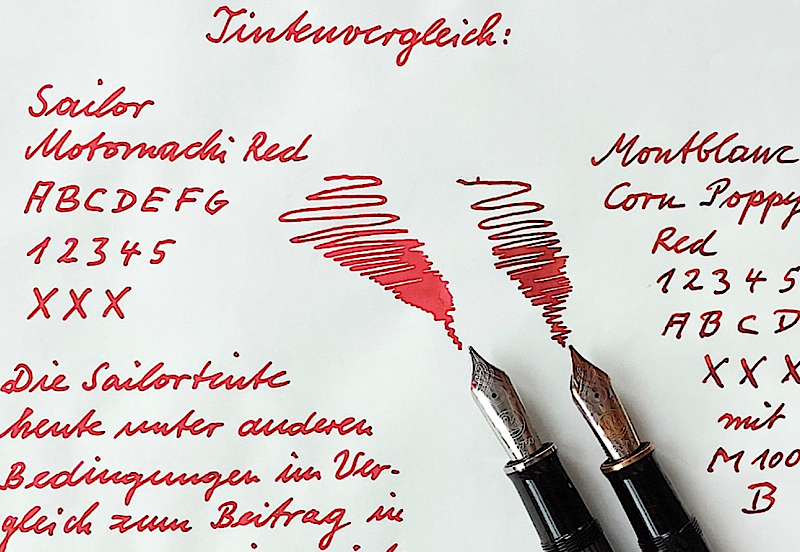 Tintenvergleich:
Sailor
Motomachi Red
ABCDEFG
12345
XXX
Die Sailortinte
heute unter anderen
Bedingungen im Ver-
gleich zum Beitrag in
Montblanc
Corn Poppy
Red
12345
ABCD
XXX
mit
M100
B